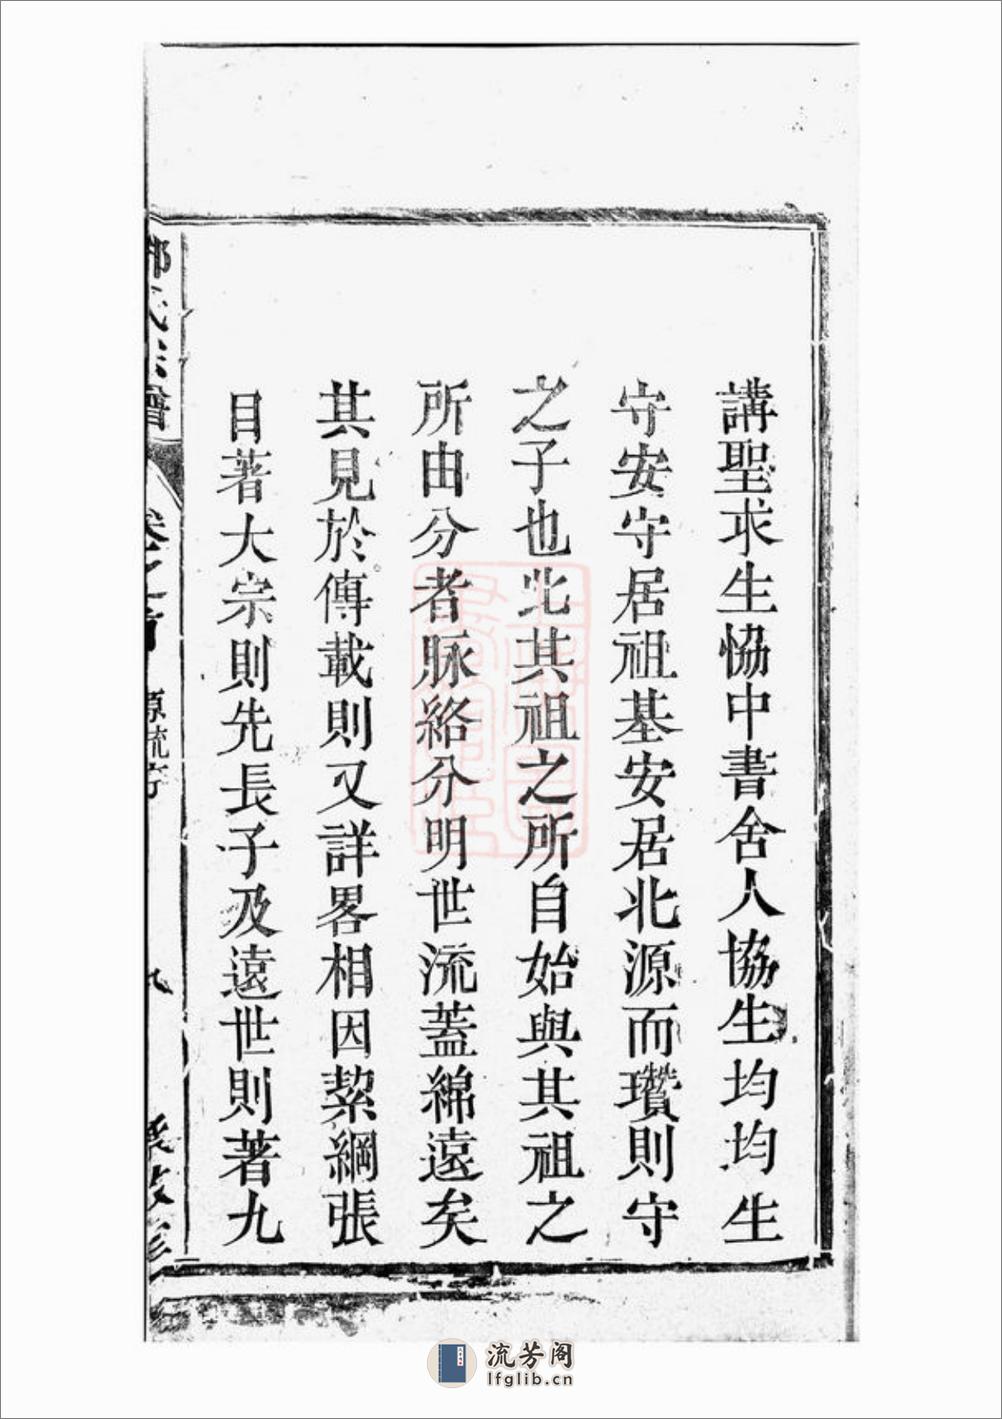 講聖求生恊中書舍人協生均均生
守安守居祖基安居北源而瓚則守
之子也此其祖之所自始與其祖之
所由分者脉絡分明世流蓋綿遠矣
其見於傳載則又詳畧相因挈綱張
目著大宗則先長子及遠世則著九
卷之首
源流序
九
流芳阁
lfglib.cn